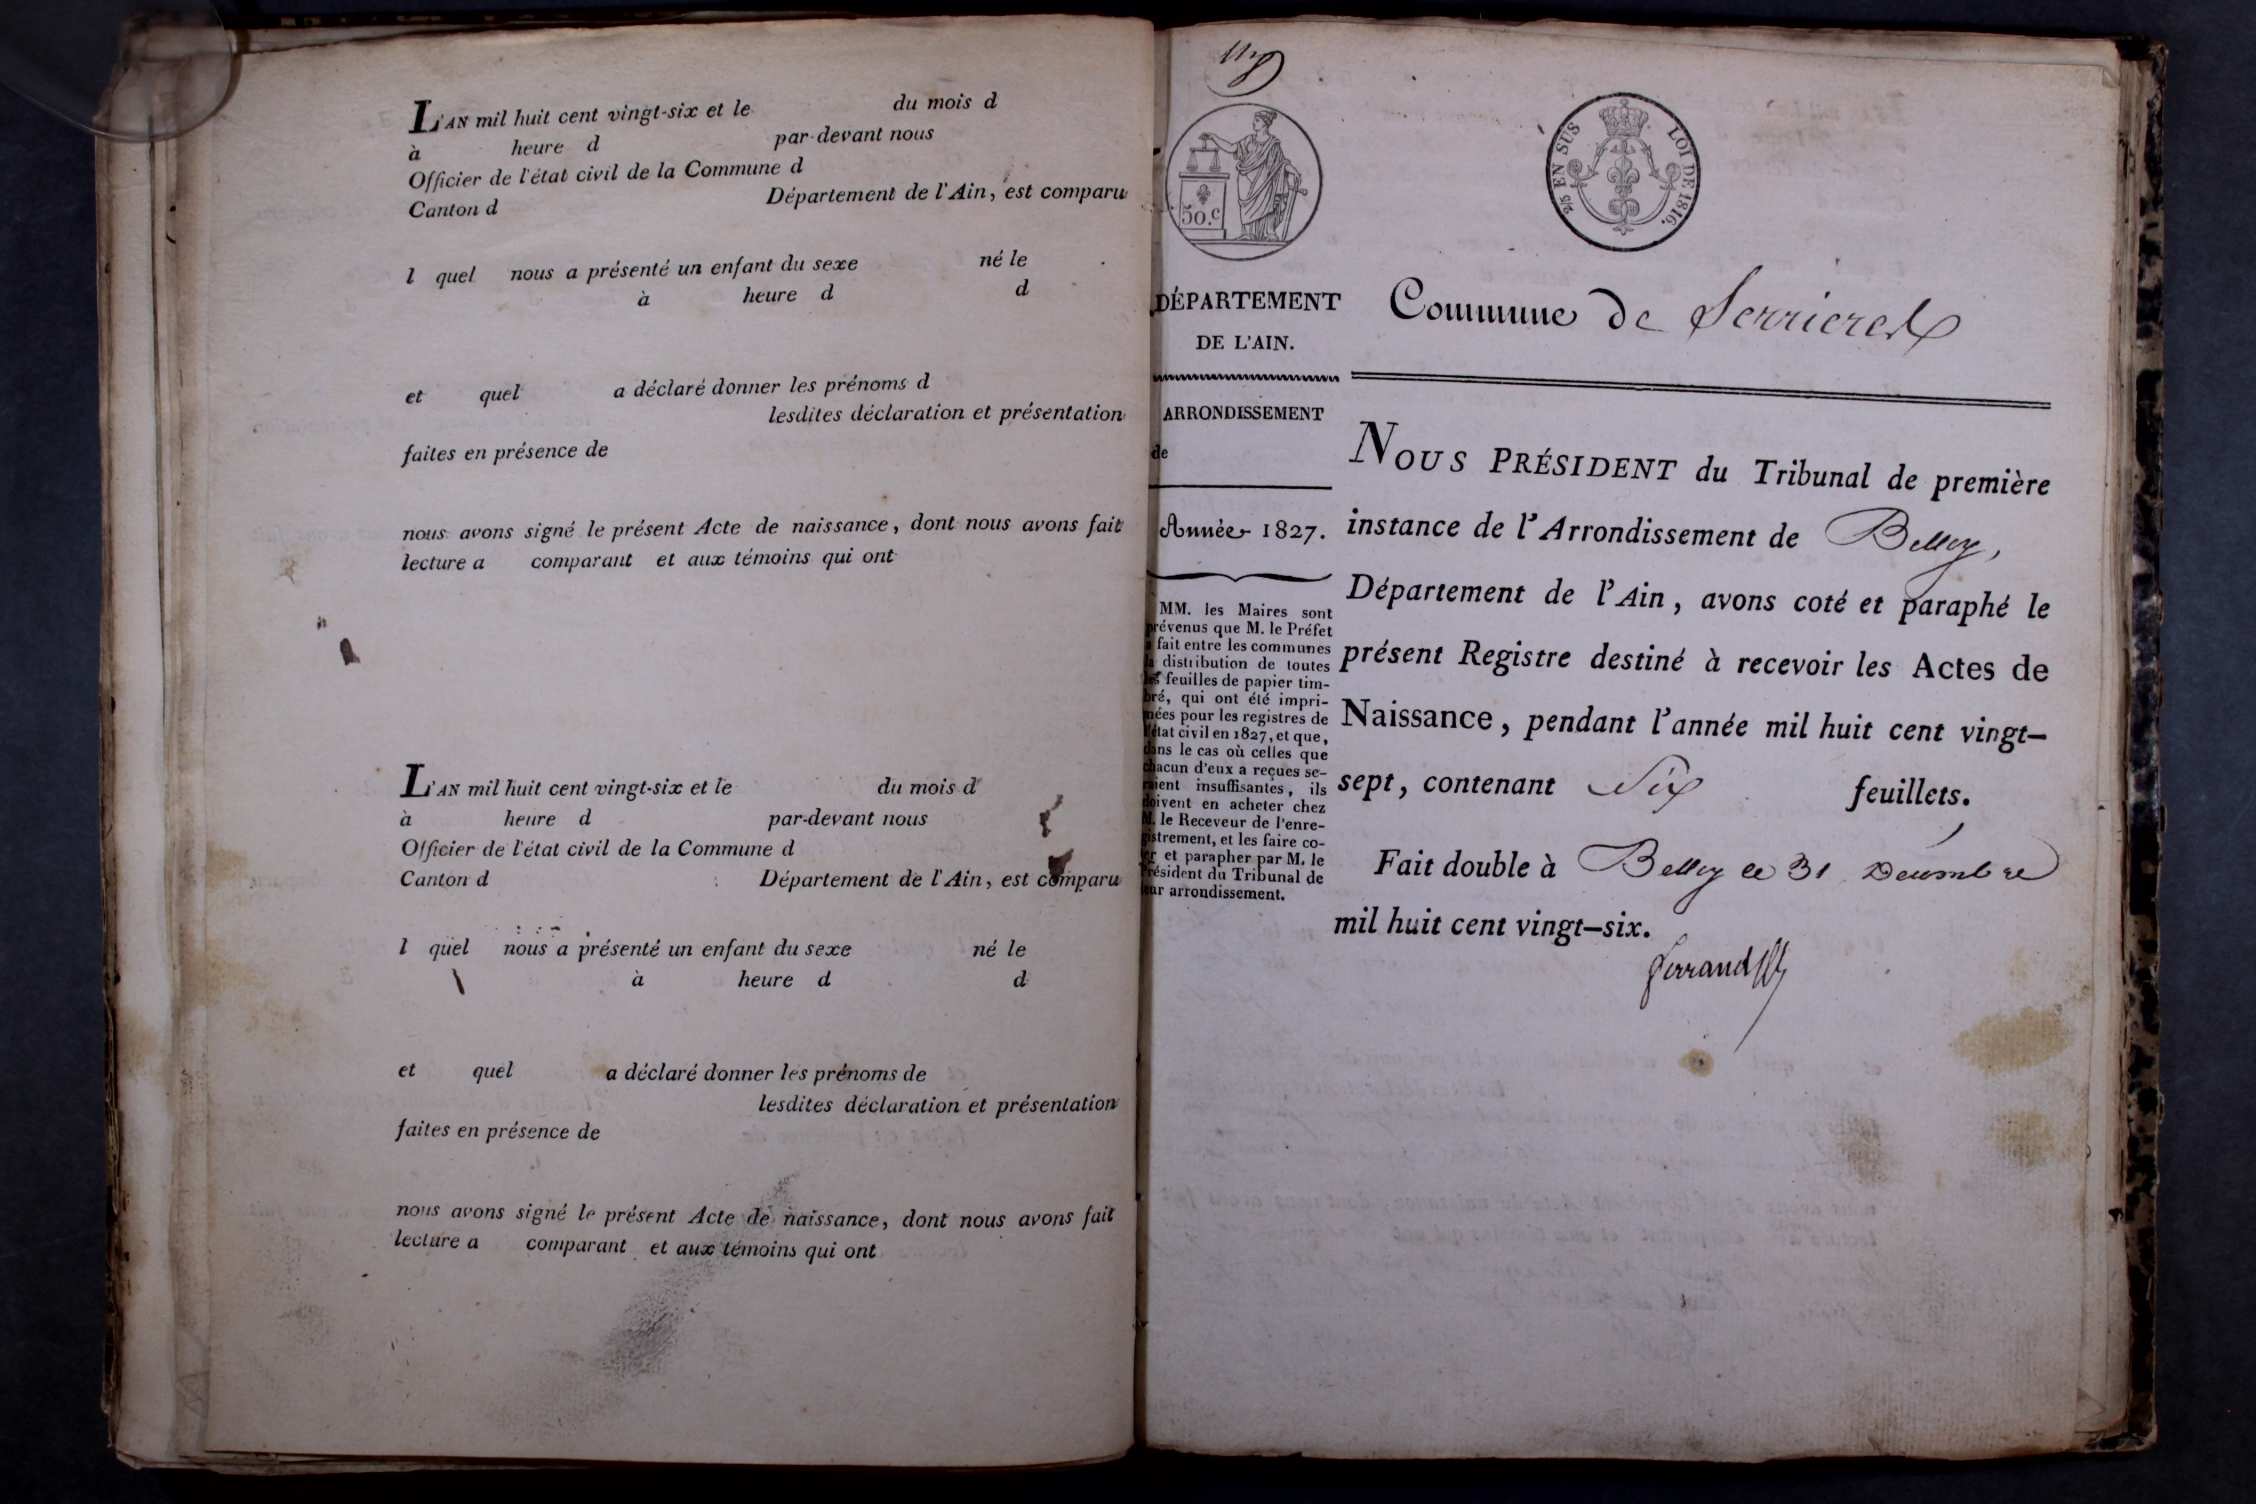 L'AN mil huit cent vingt-six et le du mois d
à heure d par-devant nous
Officier de l'état civil de la Commune d
Canton d Département de l'Ain, est comparu
l quel nous a présenté un enfant du sexe né le
à heure d d
et quel a déclaré donner les prénoms d
lesdites déclaration et présentation
faites en présence de
nous avons signé le présent Acte de naissance, dont nous avons fait
lecture a comparant et aux témoins qui ont
L'AN mil huit cent vingt-six et le du mois d
à heure d par-devant nous
Officier de l'état civil de la Commune d
Canton d Département de l'Ain, est comparu
l quel nous a présenté un enfant du sexe né le
à heure d d
et quel a déclaré donner les prénoms de
lesdites déclaration et présentation
faites en présence de
nous avons signé le présent Acte de naissance, dont nous avons fait
lecture a comparant et aux témoins qui ont
50.c
2/5 EN SUS LOI DE 1816.
DÉPARTEMENT
DE L'AIN.
ARRONDISSEMENT
de
Année 1827.
MM. les Maires sont
prévenus que M. le Préfet
a fait entre les communes
la distribution de toutes
les feuilles de papier tim-
bré, qui ont été impri-
mées pour les registres de
l'état civil en 1827, et que,
dans le cas où celles que
chacun d'eux a reçues se-
raient insuffisantes, ils
doivent en acheter chez
M. le Receveur de l'enre-
gistrement, et les faire co-
ter et parapher par M. le
Président du Tribunal de
leur arrondissement.
Commune de Serrieres
NOUS PRÉSIDENT du Tribunal de première
instance de l'Arrondissement de Belley,
Département de l'Ain, avons coté et paraphé le
présent Registre destiné à recevoir les Actes de
Naissance, pendant l'année mil huit cent vingt-
sept, contenant Six feuillets.
Fait double à Belley le 31 Décembre
mil huit cent vingt-six.
Ferrand